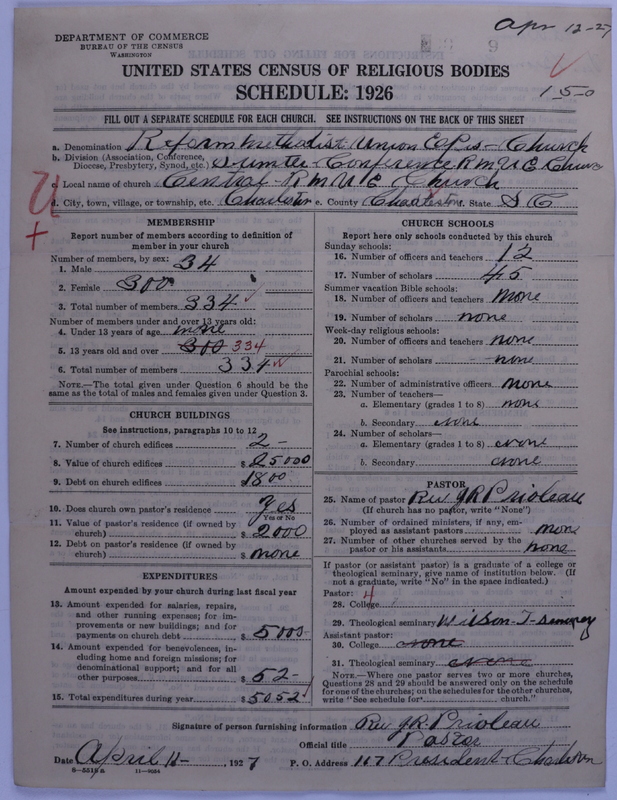 Apr 12-27
DEPARTMENT OF COMMERCE
BUREAU OF THE CENSUS
WASHINGTON
UNITED STATES CENSUS OF RELIGIOUS BODIES
SCHEDULE: 1926
1-5-0
FILL OUT A SEPARATE SCHEDULE FOR EACH CHURCH. SEE INSTRUCTIONS ON THE BACK OF THIS SHEET
a. Denomination Reform Methodist Union Epis- Church
b. Division (Association, Conference, Diocese, Presbytery, Synod, etc.) Sumter-Conference R M U E Church
c. Local name of church Central-R M U E Church
d. City, town, village, or township, etc. Charleston e. County Charleston State S C
MEMBERSHIP
Report number of members according to definition of
member in your church
Number of members, by sex:
1. Male 34
2. Female 300
3. Total number of members 334
Number of members under and over 13 years old:
4. Under 13 years of age none
5. 13 years old and over 300 334
6. Total number of members 334
NOTE.—The total given under Question 6 should be the
same as the total of males and females given under Question 3.
CHURCH BUILDINGS
See instructions, paragraphs 10 to 12
7. Number of church edifices 2-
8. Value of church edifices $25000
9. Debt on church edifices $1800
10. Does church own pastor's residence? yes
Yes or No
11. Value of pastor's residence (if owned by
church) $2000
12. Debt on pastor's residence (if owned by
church) $none
EXPENDITURES
Amount expended by your church during last fiscal year
13. Amount expended for salaries, repairs,
and other running expenses; for im-
provements or new buildings; and for
payments on church debt $5000
14. Amount expended for benevolences, in-
cluding home and foreign missions; for
denominational support; and for all
other purposes $52-
15. Total expenditures during year $5052
CHURCH SCHOOLS
Report here only schools conducted by this church
Sunday schools:
16. Number of officers and teachers 12
17. Number of scholars 45
Summer vacation Bible schools:
18. Number of officers and teachers none
19. Number of scholars none
Week-day religious schools:
20. Number of officers and teachers none
21. Number of scholars none
Parochial schools:
22. Number of administrative officers none
23. Number of teachers—
a. Elementary (grades 1 to 8) none
b. Secondary none
24. Number of scholars—
a. Elementary (grades 1 to 8) none
b. Secondary none
PASTOR
25. Name of pastor Rev J R Prioleau
(If church has no pastor, write "None")
26. Number of ordained ministers, if any, em-
ployed as assistant pastors none
27. Number of other churches served by the
pastor or his assistants none
If pastor (or assistant pastor) is a graduate of a college or
theological seminary, give name of institution below. (If
not a graduate, write "No" in the space indicated.)
Pastor:
28. College
29. Theological seminary
Assistant pastor:
30. College none
31. Theological seminary none
NOTE.—Where one pastor serves two or more churches,
Questions 28 and 29 should be answered only on the schedule
for one of the churches; on the schedules for the other churches,
write "See schedule for church."
Signature of person furnishing information Rev J R Prioleau
Official title Pastor
Date April 11- 1927 P. O. Address 117 President-Charleston
8-5518 a 11-9054